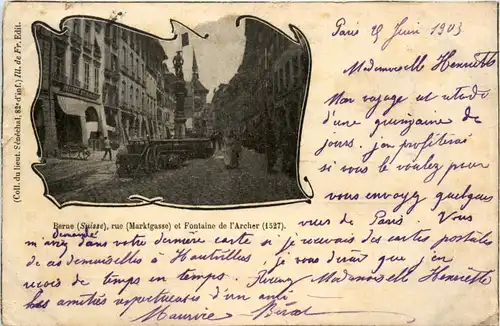 (Coll. du lieut. Sénéchal, 82e d'inf.) Ill. de Fr. Edit.
Berne (Suisse), rue (Marktgasse) et Fontaine de l'Archer (1527).
Paris 29 Juin 1903
Mademoiselle Henriette
Mon voyage est retardé
d'une quinzaine de
jours. J'en profiterai
si vous le voulez pour
vous envoyer quelques
vues de Paris. Vous
m'avez demandé dans votre dernière carte si je recevais des cartes postales
de ces demoiselles à Hautvillers, je vous dirai que j'en
reçois de temps en temps. Recevez Mademoiselle Henriette
les amitiés respectueuses d'un ami
Maurice